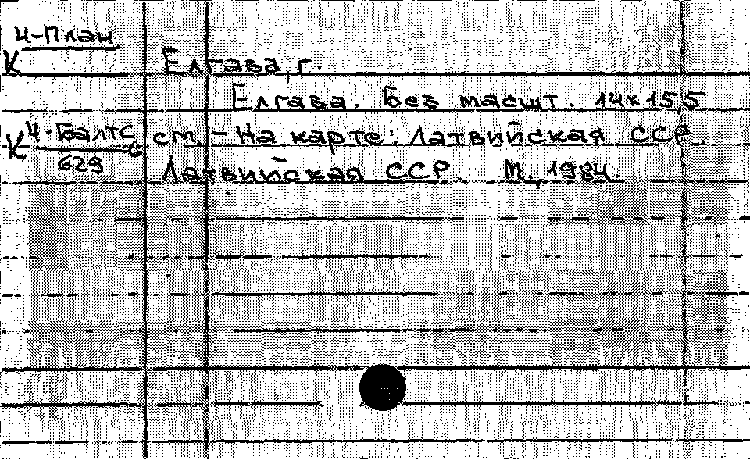 Ч-План
К
Елгава, г.
Елгава. Без масшт. 14х15,5
К Ч-Балтс
629
см. - На карте: Латвийская ССР.
Латвийская ССР. М., 1984.